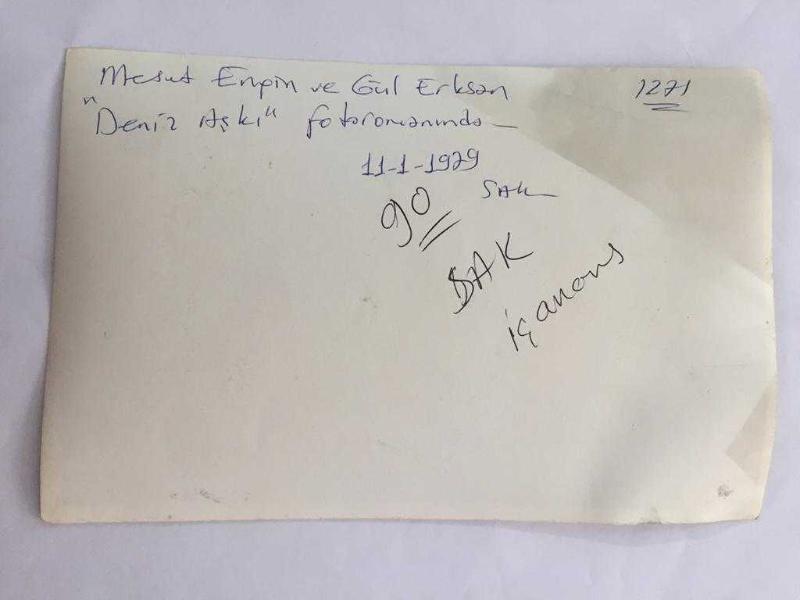 Mesut Engin ve Gül Erksan
1271
"Deniz Aşkı" fotoromanında
11-1-1979
90
SAK
SAK
iç anons